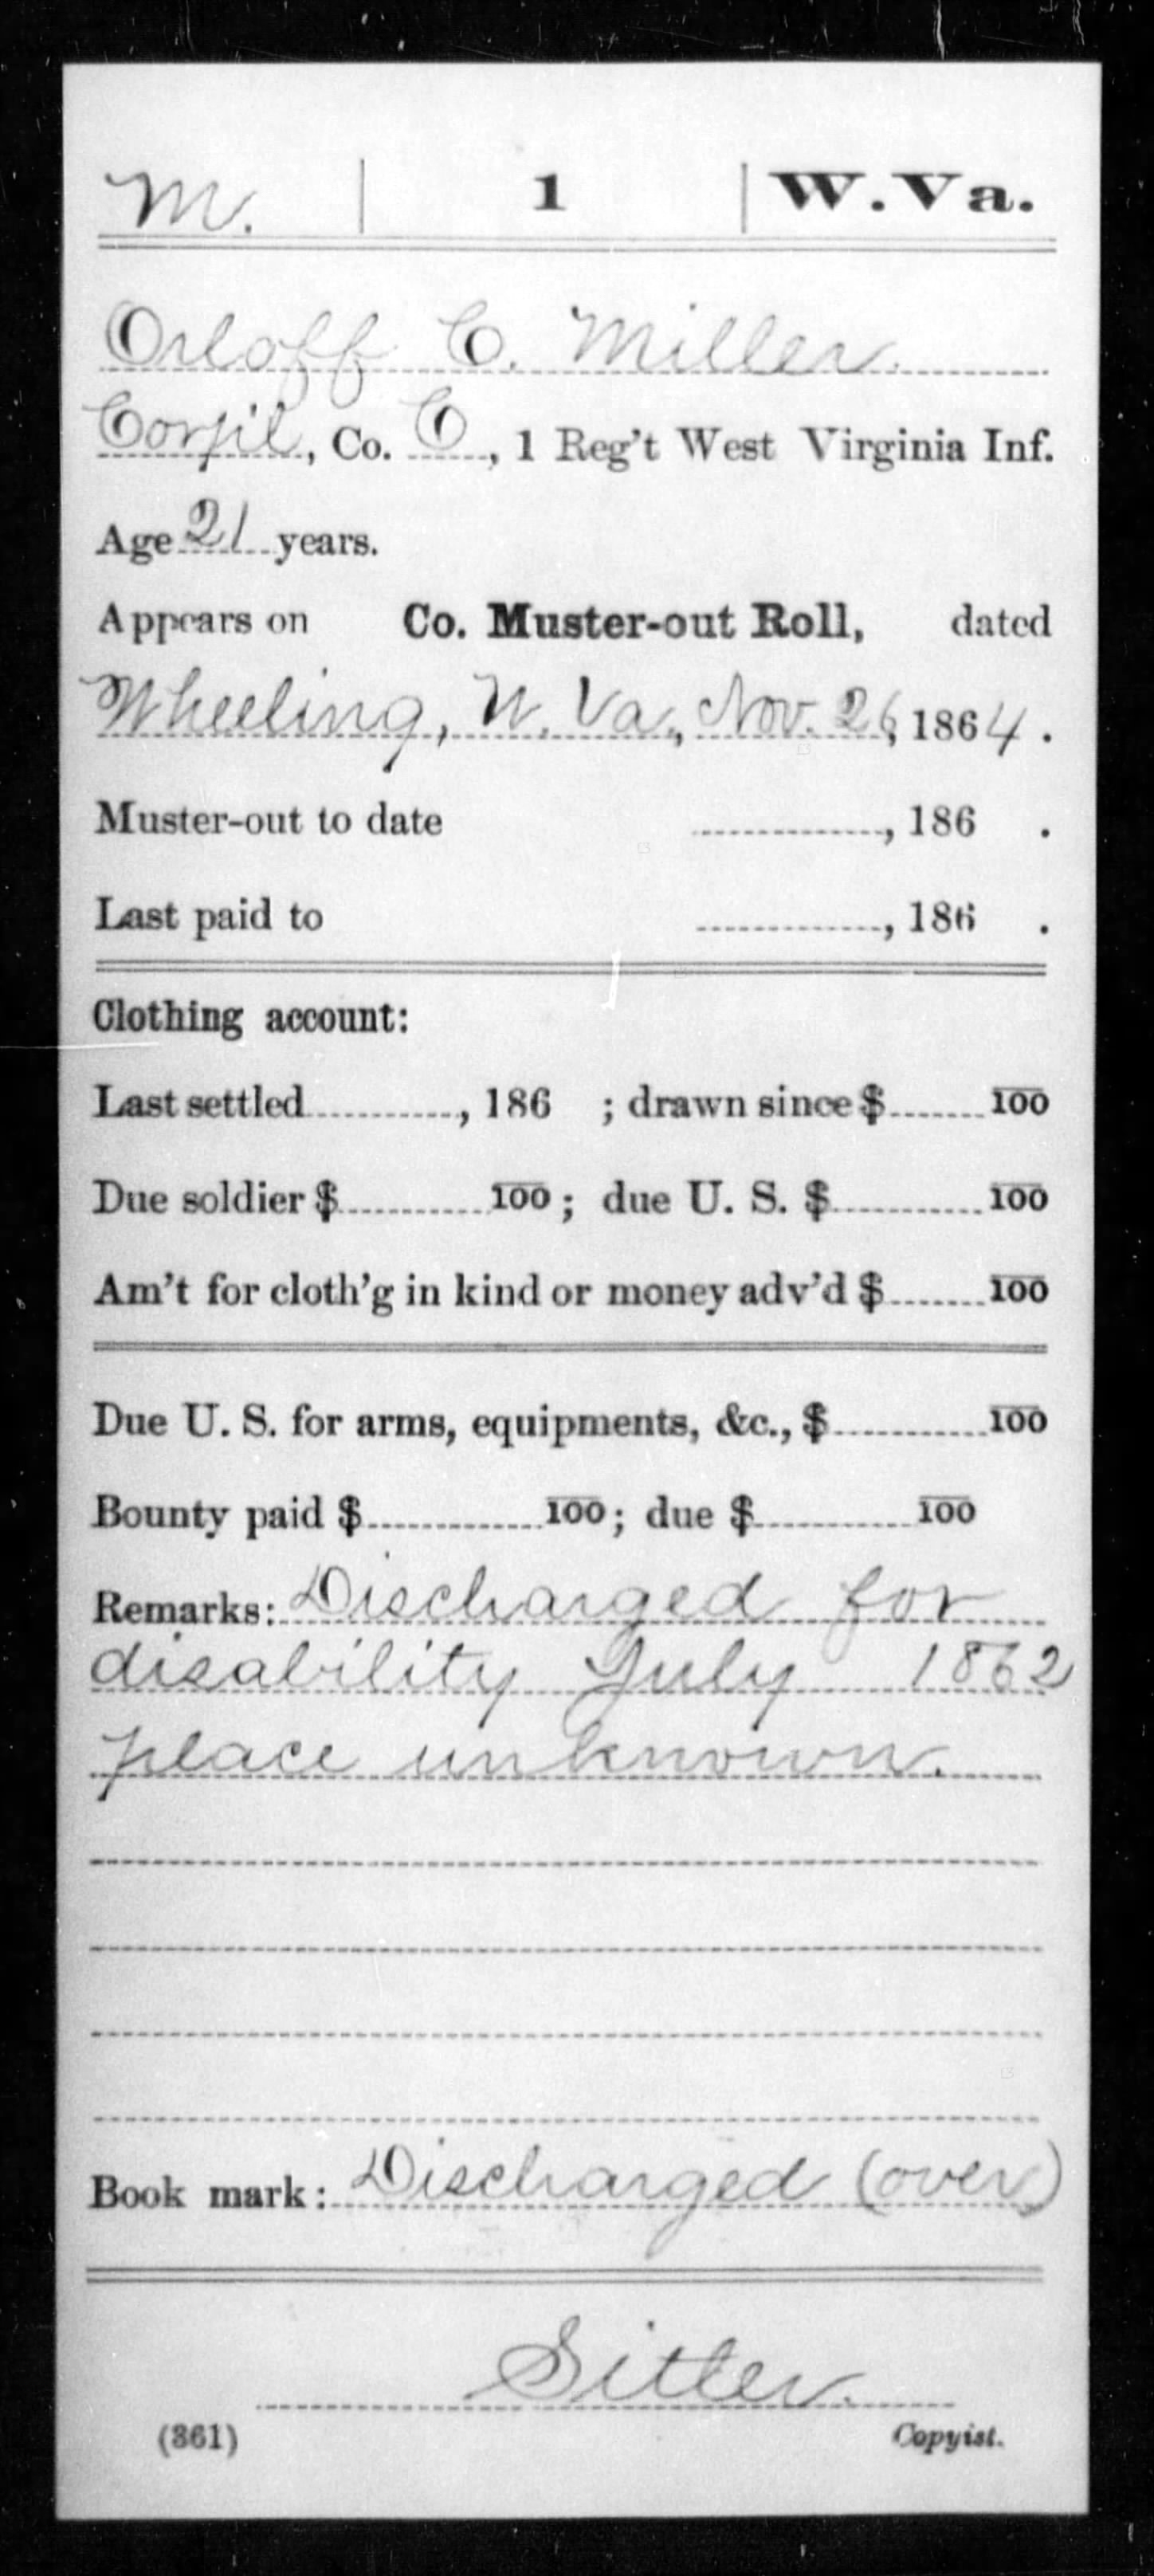 M. | 1 | W. Va.
Orloff C. Miller.
Corp'l, Co. C, 1 Reg't West Virginia Inf.
Age 21 years.
Appears on Co. Muster-out Roll, dated
Wheeling, W. Va., Nov. 26, 1864.
Muster-out to date , 186 .
Last paid to , 186 .
Clothing account:
Last settled , 186 ; drawn since $ 100
Due soldier $ 100; due U. S. $ 100
Am't for cloth'g in kind or money adv'd $ 100
Due U. S. for arms, equipments, &c., $ 100
Bounty paid $ 100; due $ 100
Remarks: Discharged for
disability July 1862
place unknown.
Book mark: Discharged (over)
Sitler.
(361) Copyist.